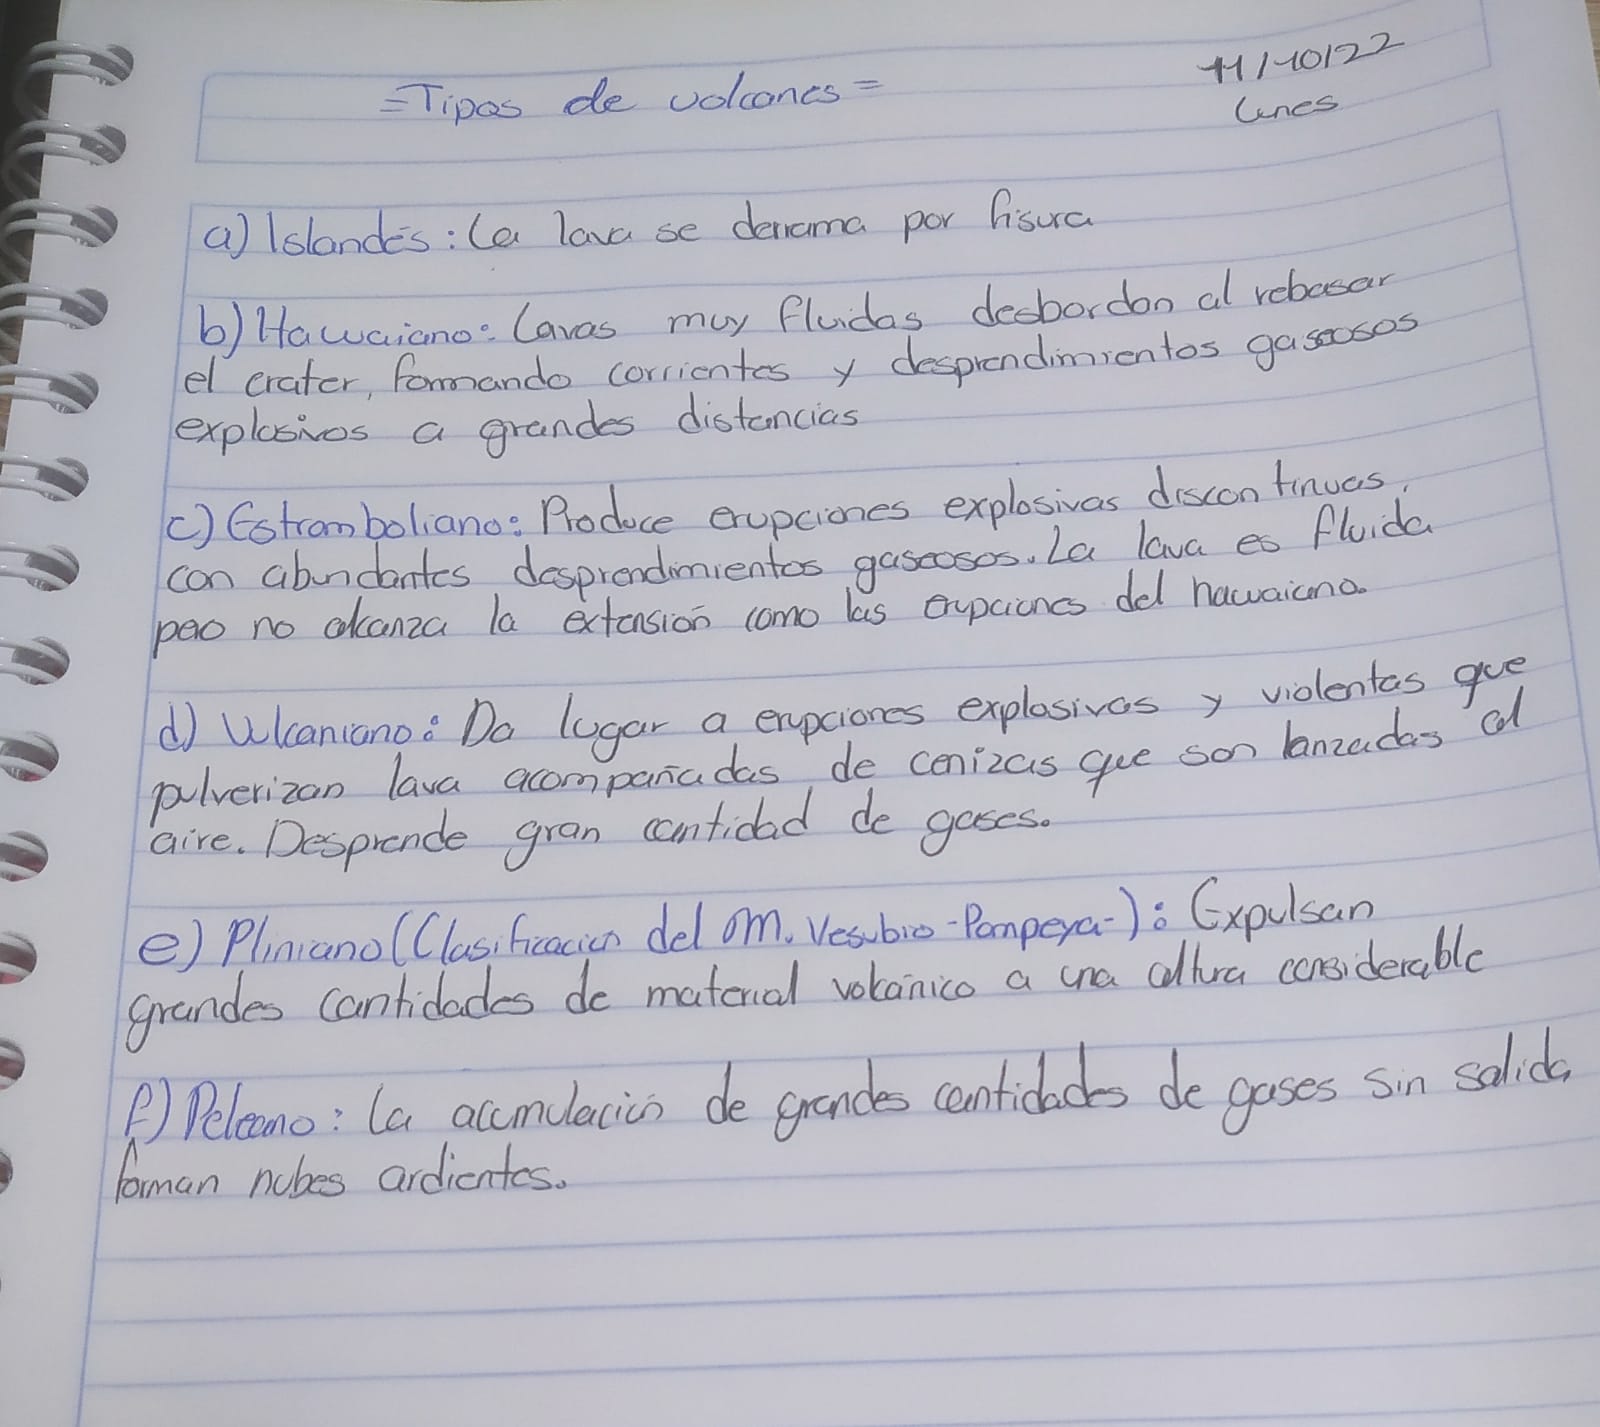 =Tipos de volcanes=
11/10/22
Lunes
a) Islandés: La lava se derrama por fisura
b) Hawaiano: Lavas muy fluidas desbordan al rebasar
el crater, formando corrientes y desprendimientos gaseosos
explosivos a grandes distancias
c) Estromboliano: Produce erupciones explosivas discontinuas,
con abundantes desprendimientos gaseosos. La lava es fluida
pero no alcanza la extensión como las erupciones del hawaiano.
d) Vulcaniano: Da lugar a erupciones explosivas y violentas que
pulverizan lava acompañadas de cenizas que son lanzadas al
aire. Desprende gran cantidad de gases.
e) Pliniano (Clasificacion del M. Vesubio -Pompeya-): Expulsan
grandes cantidades de material volcánico a una altura considerable
f) Peleano: La acumulación de grandes cantidades de gases sin salida
forman nubes ardientes.